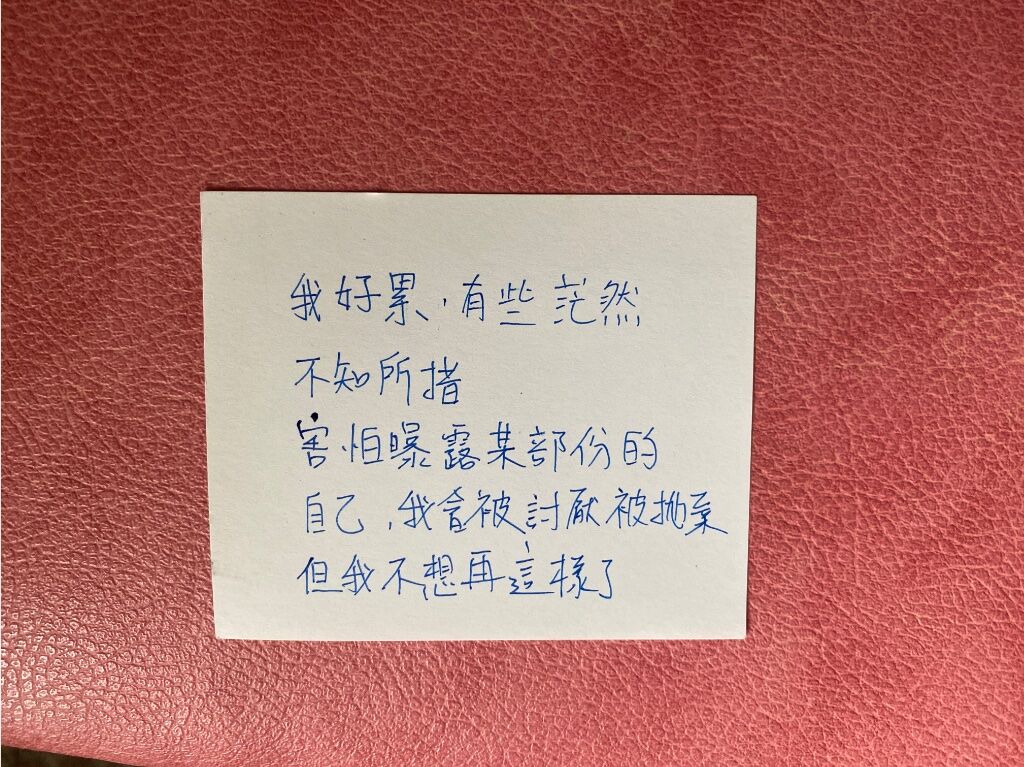 我好累，有些茫然
不知所措
害怕曝露某部份的
自己，我會被討厭被拋棄
但我不想再這樣了